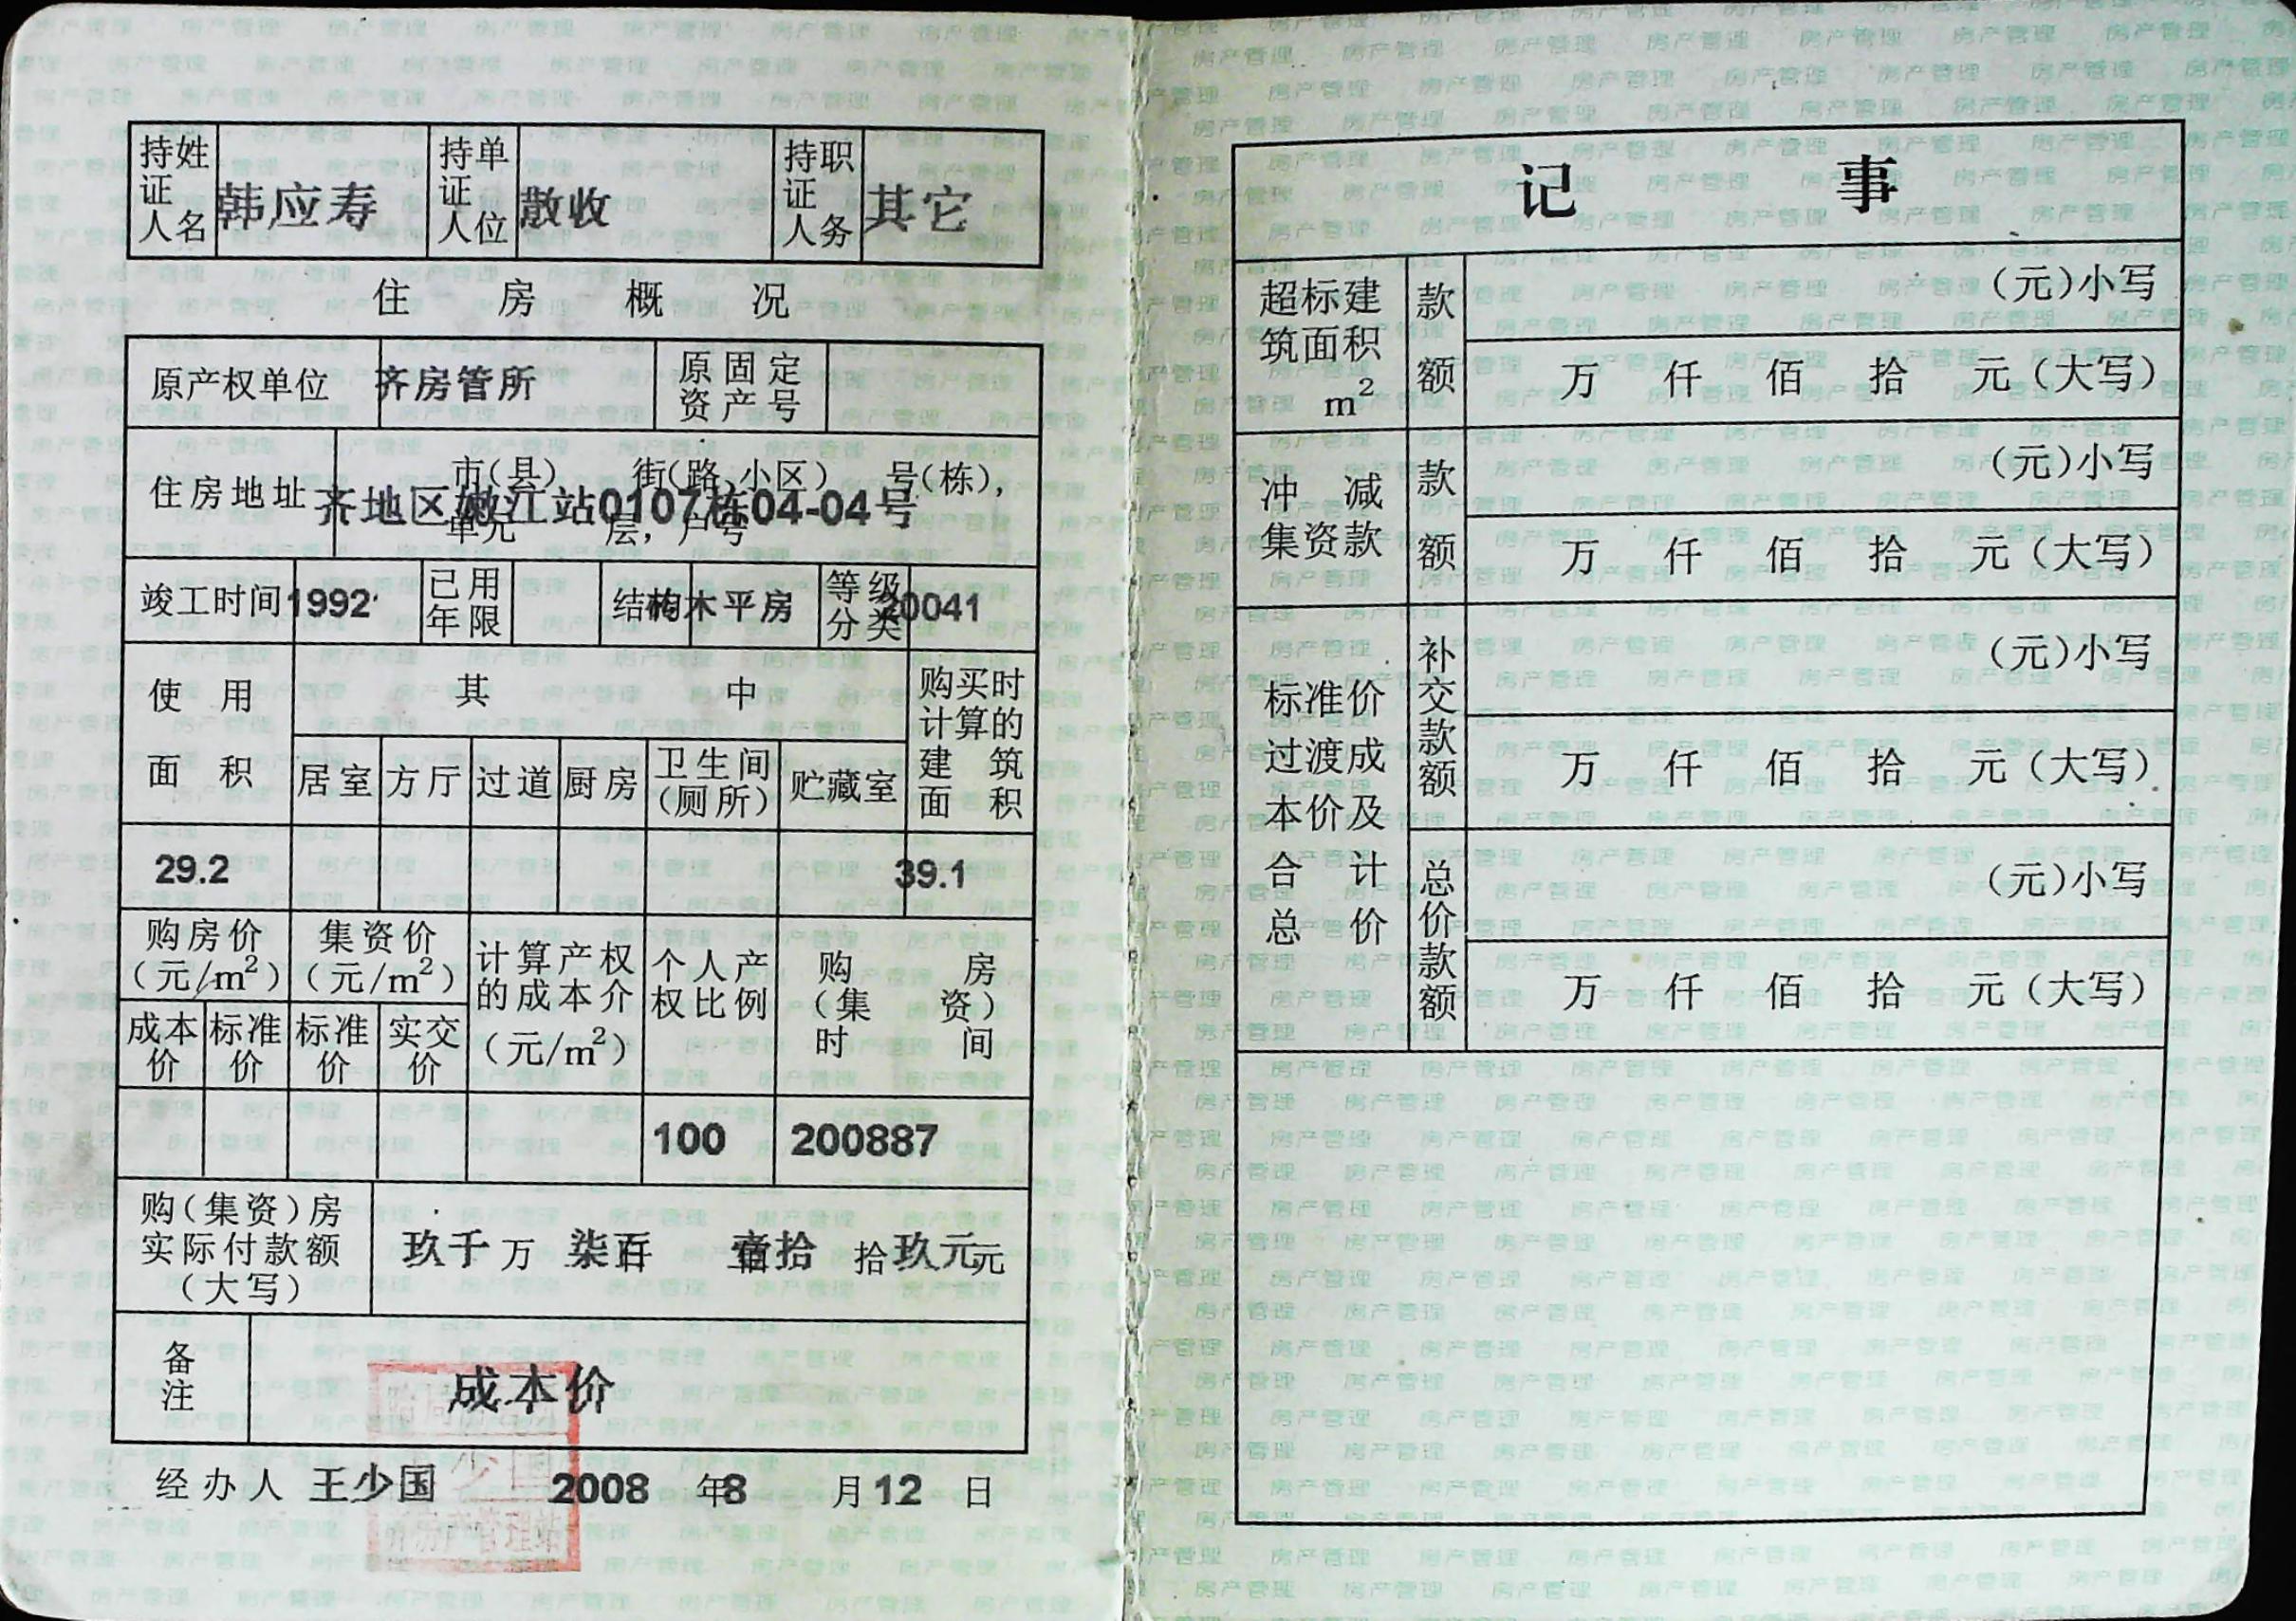 持证人姓名 韩应寿 持证人单位 散收 持证人职务 其它
住房概况
原产权单位 齐房管所 原固定资产号
住房地址 市(县) 街(路,小区) 号(栋),
齐地区嫩江站0107栋04-04号
单元 层, 户号
竣工时间 1992 已用年限 结构 木平房 等级分类 20041
使用面积 其中 购买时计算的建筑面积
居室 方厅 过道 厨房 卫生间(厕所) 贮藏室
29.2 39.1
购房价(元/m²) 集资价(元/m²) 计算产权的成本介(元/m²) 个人产权比例 购房(集资)时间
成本价 标准价 标准价 实交价
100 200887
购(集资)房实际付款额(大写) 玖千 万 柒百 仟 壹拾 佰 拾 玖元 元
备注 成本价
经办人 王少国 2008 年 8 月 12 日
记事
超标建筑面积 m² 款额 (元)小写
万 仟 佰 拾 元(大写)
冲减集资款 款额 (元)小写
万 仟 佰 拾 元(大写)
标准价过渡成本价及合计总价 补交款额 (元)小写
万 仟 佰 拾 元(大写)
总价款额 (元)小写
万 仟 佰 拾 元(大写)